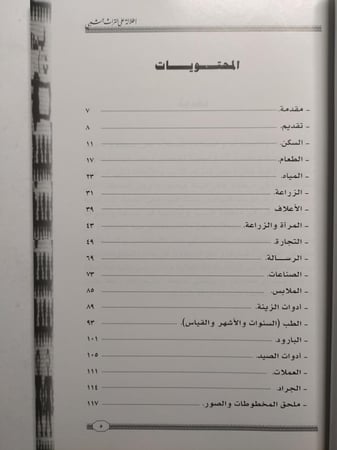 إطلالة على التراث الشعبي
المحتويات
- مقدمة. ٧
- تقديم. ٨
- السكن. ١١
- الطعام. ١٧
- المياه. ٢٣
- الزراعة. ٣١
- الأعلاف. ٣٩
- المرأة والزراعة. ٤٣
- التجارة. ٤٩
- الرسالة. ٦٩
- الصناعات. ٧٣
- الملابس. ٨٥
- أدوات الزينة. ٨٩
- الطب (السنوات والأشهر والقياس). ٩٣
- البارود. ١٠١
- أدوات الصيد. ١٠٥
- العملات. ١١١
- الجراد. ١١٤
- ملحق المخطوطات والصور. ١١٧
٥